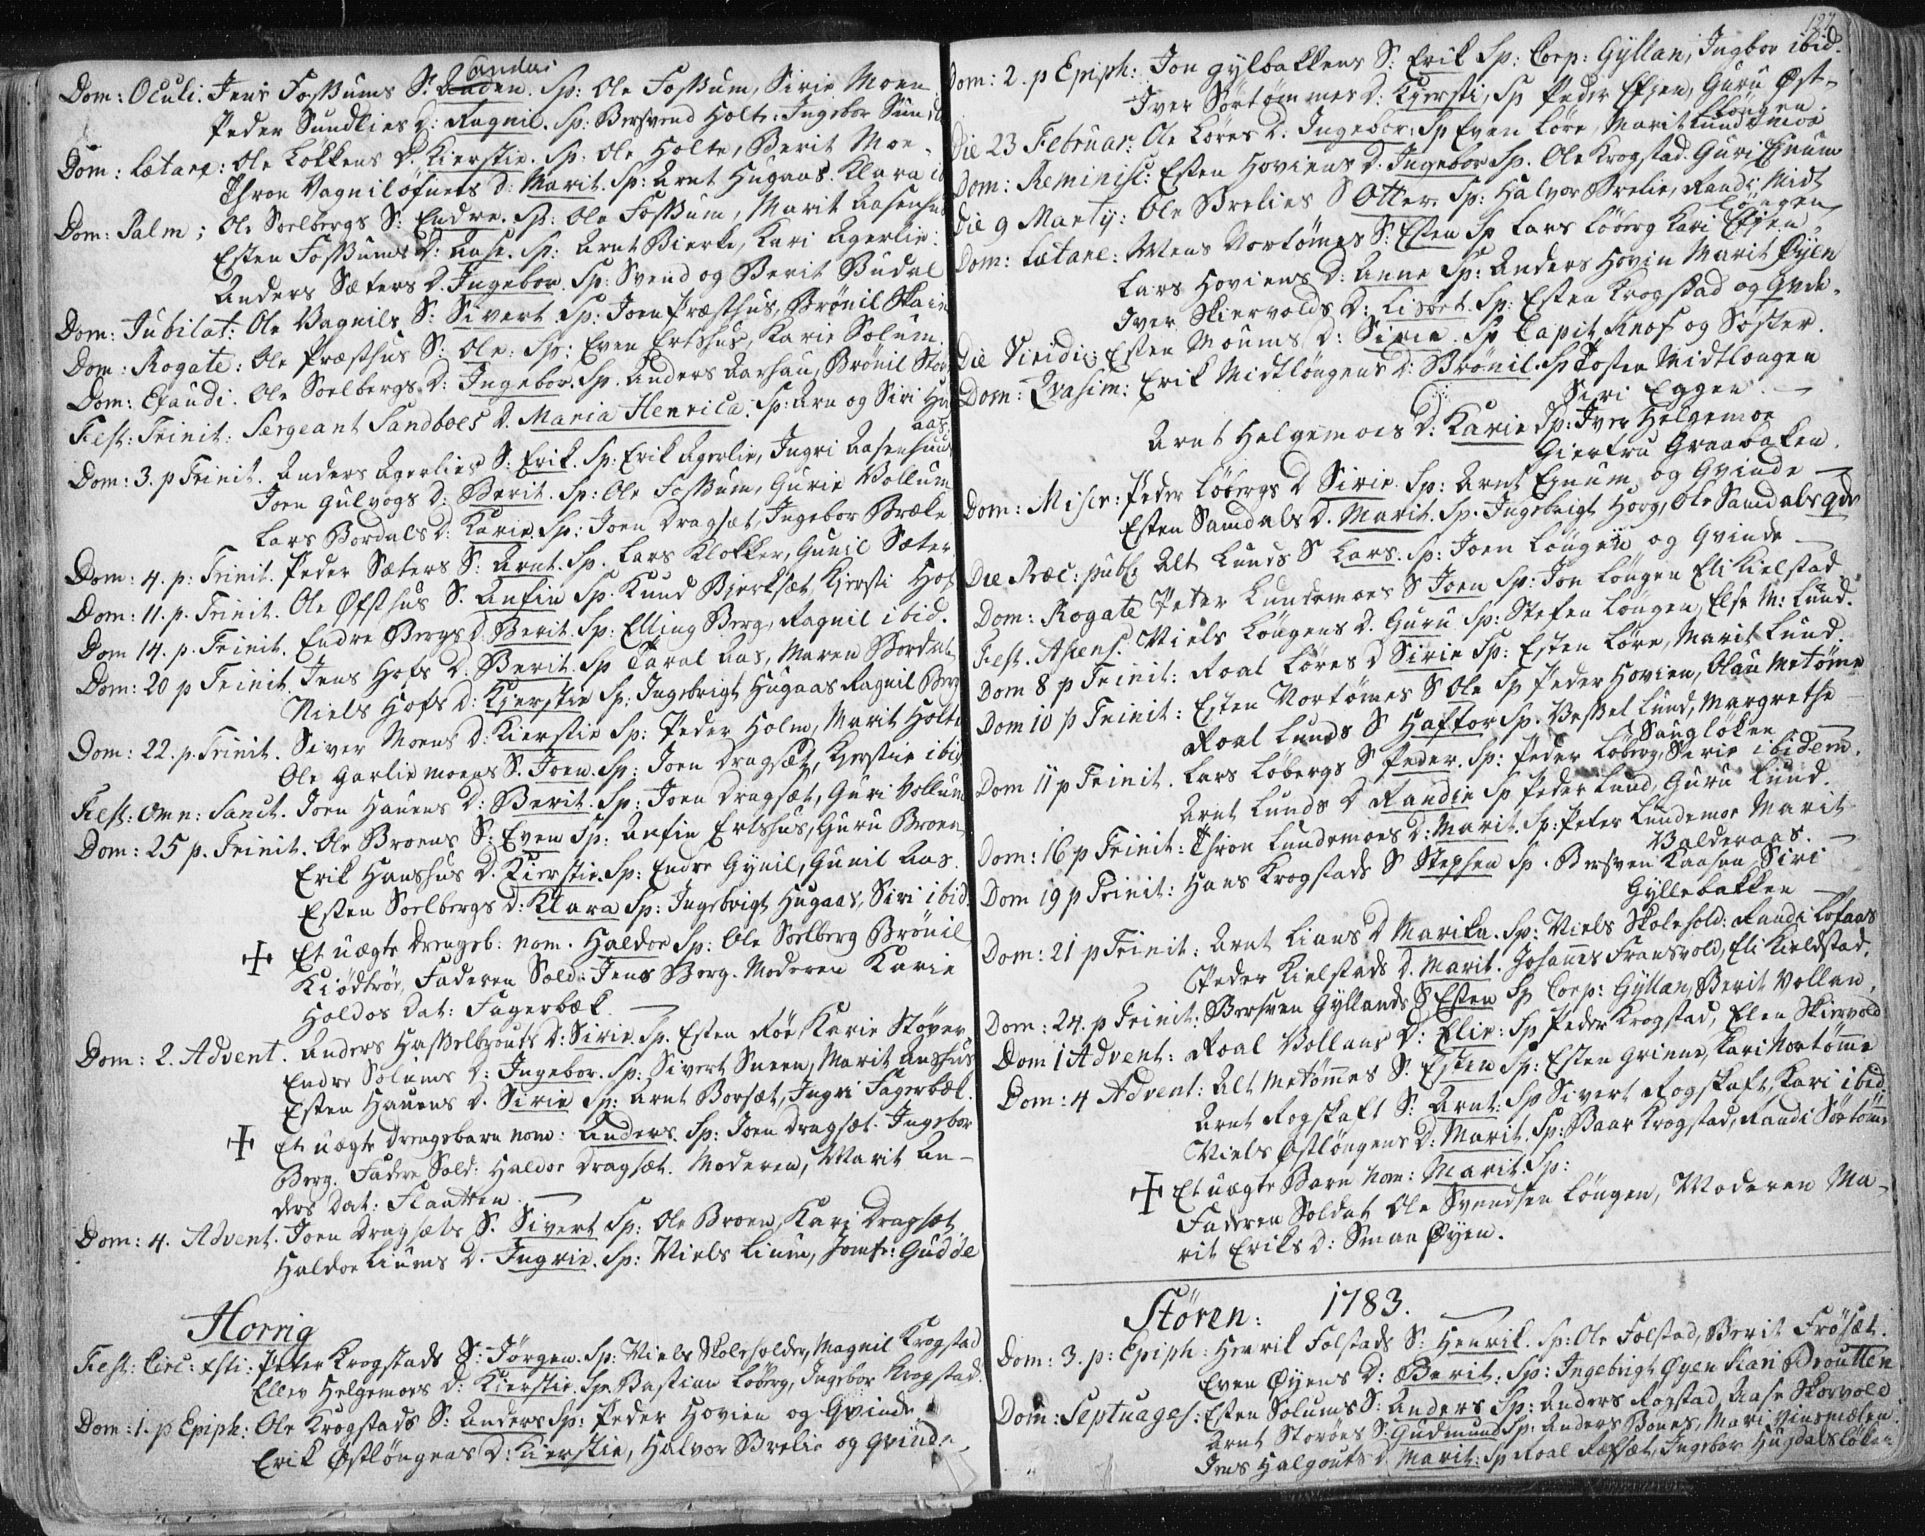 Dom: Oculi. Jens Fossums S: Anders. Sp: Ole Fossum, Sirie Moen
Peder Sundlies D: Ragnil. Sp: Berswend Holte: Ingebor
Dom: Lætare: Ole Lokkens D. Kierstie. Sp: Ole Holte, Berit Moe.
Thron Vagniløfnets D: Marit. Sp: Arnt Hugaas. Klara
Dom: Palm; Ole Soelbergs S: Endre. Sp: Ole Fossum, Marit
Esten Fossums D: Aase. Sp: Arnt Bierke, Kari Agerlie.
Anders Sæters D. Ingebor. Sp: Svend og Berit Budal
Dom: Jubilat: Ole Vagnils S: Sivert. Sp: Joen Præsthus, Brønil
Dom: Rogate: Ole Præsthus S: Ole: Sp: Even Ertshus, Karie Solum.
Dom: Exaudi. Ole Soelbergs D: Ingebor. Sp. Anders Aarhau, Brønil
Fest: Trinit: Sergeant Sandboes D. Maria Henrica. Sp: Arn og Siri Hu
aas.
Dom: 3. p Trinit. Anders Agerlies S: Erik. Sp: Erik Agerlie, Ingri
Joen Gulvogs D: Berit. Sp: Ole Fossum, Gurie Vollum
Lars Bordals D: Karie. Sp: Joen Dragsæt, Ingebor
Dom: 4. p: Trinit. Peder Sæters S: Arnt. Sp. Lars Klokker, Gunil Sæter
Dom: 11. p. Trinit. Ole Øfsthus S. Anfin Sp. Knud Bjerksæt, Kjersti Hof
Dom 14. p. Trinit. Endre Bergs D. Berit. Sp: Elling Berg, Ragnil ibid.
Dom: 20 p Trinit. Jens Hofs D: Berit. Sp Taral Aas, Maren Bordal
Niels Hofs D: Kjerstie Sp: Ingebrigt Hugaas Ragnil Berg
Dom: 22. p. Trinit. Siver Moens D: Kierstie Sp: Peder Holm, Marit Holte
Ole Garliemoens S. Joen. Sp: Joen Dragsæt, Kjerstie ibid
Fest: Omn: Sanct. Joen Hauens D: Berit. Sp: Joen Dragsæt, Guri Vollum
Dom: 25 p. Trinit. Ole Broens S: Even Sp: Anfin Ertshus, Guru Broen
Erik Hanshus D. Kierstie. Sp: Endre Gynil, Gunil Aas.
Esten Soelbergs D: Klara Sp: Ingebrigt Hugaas, Siri ibid.
Et uægte Drengeb: nom. Haldor Sp: Ole Soelberg Brønil
Kiødtrør, Faderen Sold: Jens Berg. Moderen Karie
Holdos Dat: Fagerbæk.
Dom: 2. Advent. Anders Hasselbrouts D: Sirie. Sp. Esten Røe, Karie Støren
Endre Solums D: Ingebor. Sp: Sivert Sneen, Marit Aashus
Esten Hauens D. Sirie Sp: Arnt Borsæt, Ingri Fagerbæk.
Et uægte drengebarn nom: Anders. Sp: Joen Dragsæt. Ingebor
Berg. Fadere Sold: Haldor Dragsæt. Moderen, Marit An-
ders Dat: Flaatten.
Dom: 4. Advent. Joen Dragsæts S. Sivert Sp: Ole Broen, Kari Dragsæt
Haldor Liums D. Ingrie. Sp: Niels Lium, Jomfr: Gudde
Horrig
Fest: Circ: Xsti: Peter Krogstads S: Jørgen. Sp: Niels Skoleholder, Magnil Krogstad
Ellev Helgemoes D: Kierstie. Sp. Bastian Løberg, Ingebor Krogstad.
Dom: 1. p Epiph: Ole Krogstads S: Anders Sp: Peder Hovien og Qvinde
Erik Østløngens D: Kierstie, Halvor Brelie og Qvinde
127
Dom: 2. p Epiph: Jon Gylbakkens S: Erik Sp: Corp: Gyllan, Ingbor ibid.
Iver Sørtømmes D: Kjersti, Sp Peder Efjen, Guru Øst-
løngen.
Die 23 Februar: Ole Løres D. Ingebor: Sp Even Løre, Marit Lundemoe
Dom: Reminisc: Esten Hoviens D. Ingebor Sp. Ole Krogstad. Guri Enum
Die 9 Martij: Ole Brelies S Otter Sp: Halvor Brelie, Randi Midt
løngen
Dom: Lætare: Mens Nortømes S: Esten Sp Lars Løberg Kari Efjen.
Lars Hoviens D: Anne Sp: Anders Hovin Marit Øyen
Iver Skiervolds D: Lisbet. Sp: Esten Krogstad og Qvde.
Die Viridi: Esten Moums D: Sirie. Sp Capit Knof og Søster.
Dom: Qvasim: Erik Midtløngens D: Brønil. Sp Josten Midtløngen
Siri Eggen.
Arnt Helgemoes D: Karie Sp: Iver Helgemoe
Giertru Graabaken.
Dom: Miser: Peder Løbergs D Sirie. Sp: Arnt Enum og Qvinde
Esten Samdals D. Marit. Sp. Ingebrigt Horg, Ole Samdals qde
Die Præc: publ: Alt Lunds S Lars. Sp: Joen Løngen og Qvinde
Dom: Rogate Peter Lundemoes S Joen Sp: Jon Løngen Eli Kielstad
Fest. Ascens. Niels Løngens D. Guru Sp: Stefen Løngen, Else M: Lund.
Dom 8 p Trinit: Roal Løres D Sirie Sp: Esten Løre, Marit Lund.
Dom 10 p Trinit: Esten Nortømes S Ole Sp Peder Hovien, Olau Metømme
Roal Lunds S Haftor Sp. Vessel Lund, Margrethe
Saugløken
Dom 11 p Trinit. Lars Løbergs S Peder. Sp: Peder Løberg, Serie ibidem.
Arnt Lunds D Randie Sp Peder Lund, Guru Lund.
Dom: 16 p Trinit: Thron Lundemoes D: Marit. Sp: Peter Lundemoe Marit
Valderaas.
Dom 19 p Trinit: Hans Krogstads S Stephen Sp. Bersven Kaasen Siri
Gyllebakken
Dom: 21 p Trinit: Arnt Lians D Marika. Sp: Niels Skolehold: Randi Lofaas
Peder Kielstads D. Marit. Johannes Fransvold, Eli Kieldstad.
Dom: 24. p Trinit: Bersven Gyllands S Esten Sp Corp: Gyllan, Berit Vollan.
Dom 1 Advent: Roal Vollans D: Elie: Sp Peder Krogstad, Elen Skiervold
Dom: 4 Advent: Alt Metømmes S. Esten Sp: Esten Grinne, Kari Nortømme
Arnt Rogstaft S: Arnt: Sp Sivert Rogstaft, Kari ibid.
Niels Østløngens D: Marit. Sp: Baar Krogstad, Randi Sørtømme
Et uægte Barn Nom: Marit. Sp:
Faderen Soldat Ole Svendsen Løngen, Moderen Ma-
rit Eriks D: Smaa Øyen.
Støren: 1783.
Dom: 3. p: Epiph: Henrik Folstads S: Henrik. Sp: Ole Folstad, Berit Frøsæt.
Even Øyens D: Berit. Sp: Ingebrigt Øyen Kari Broutten
Dom: Septuages: Esten Solums S: Anders Sp: Anders Rogstad Aase Skorvold
Arnt Storøes S: Gudmund Sp: Anders Bones, Mari Vinsmælen.
Jens Halgouts D Marit: Sp Roal Ræssæt, Ingebor Hugdalsløken